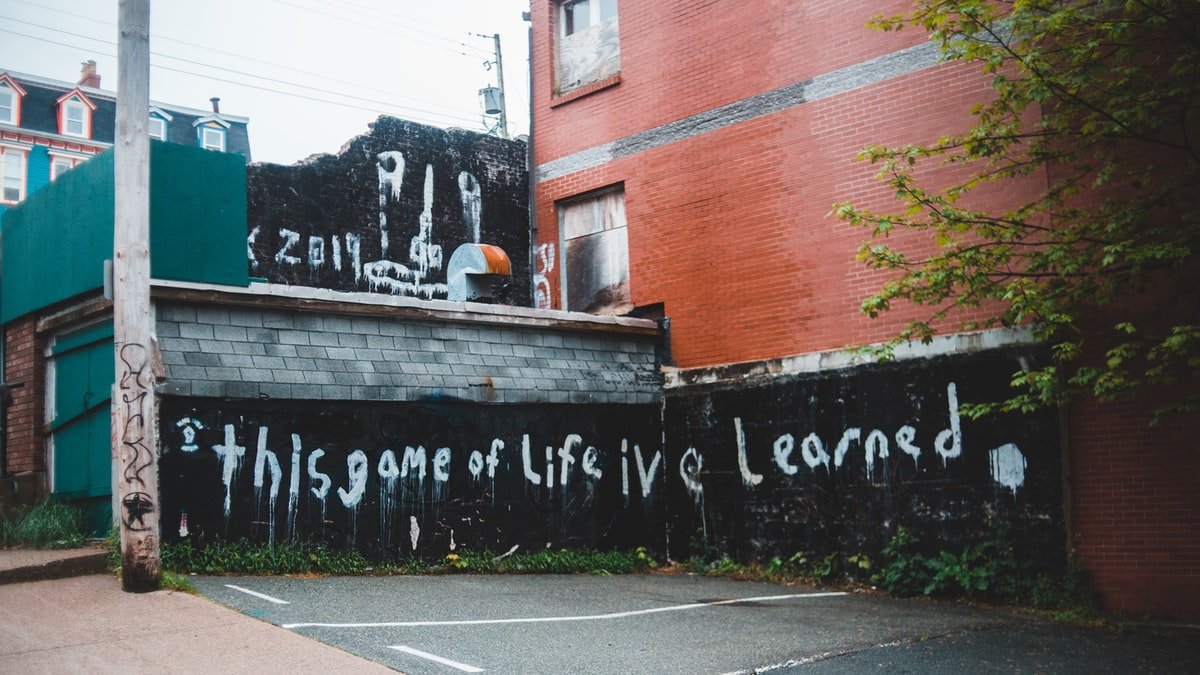 2019
this game of Life ive Learned